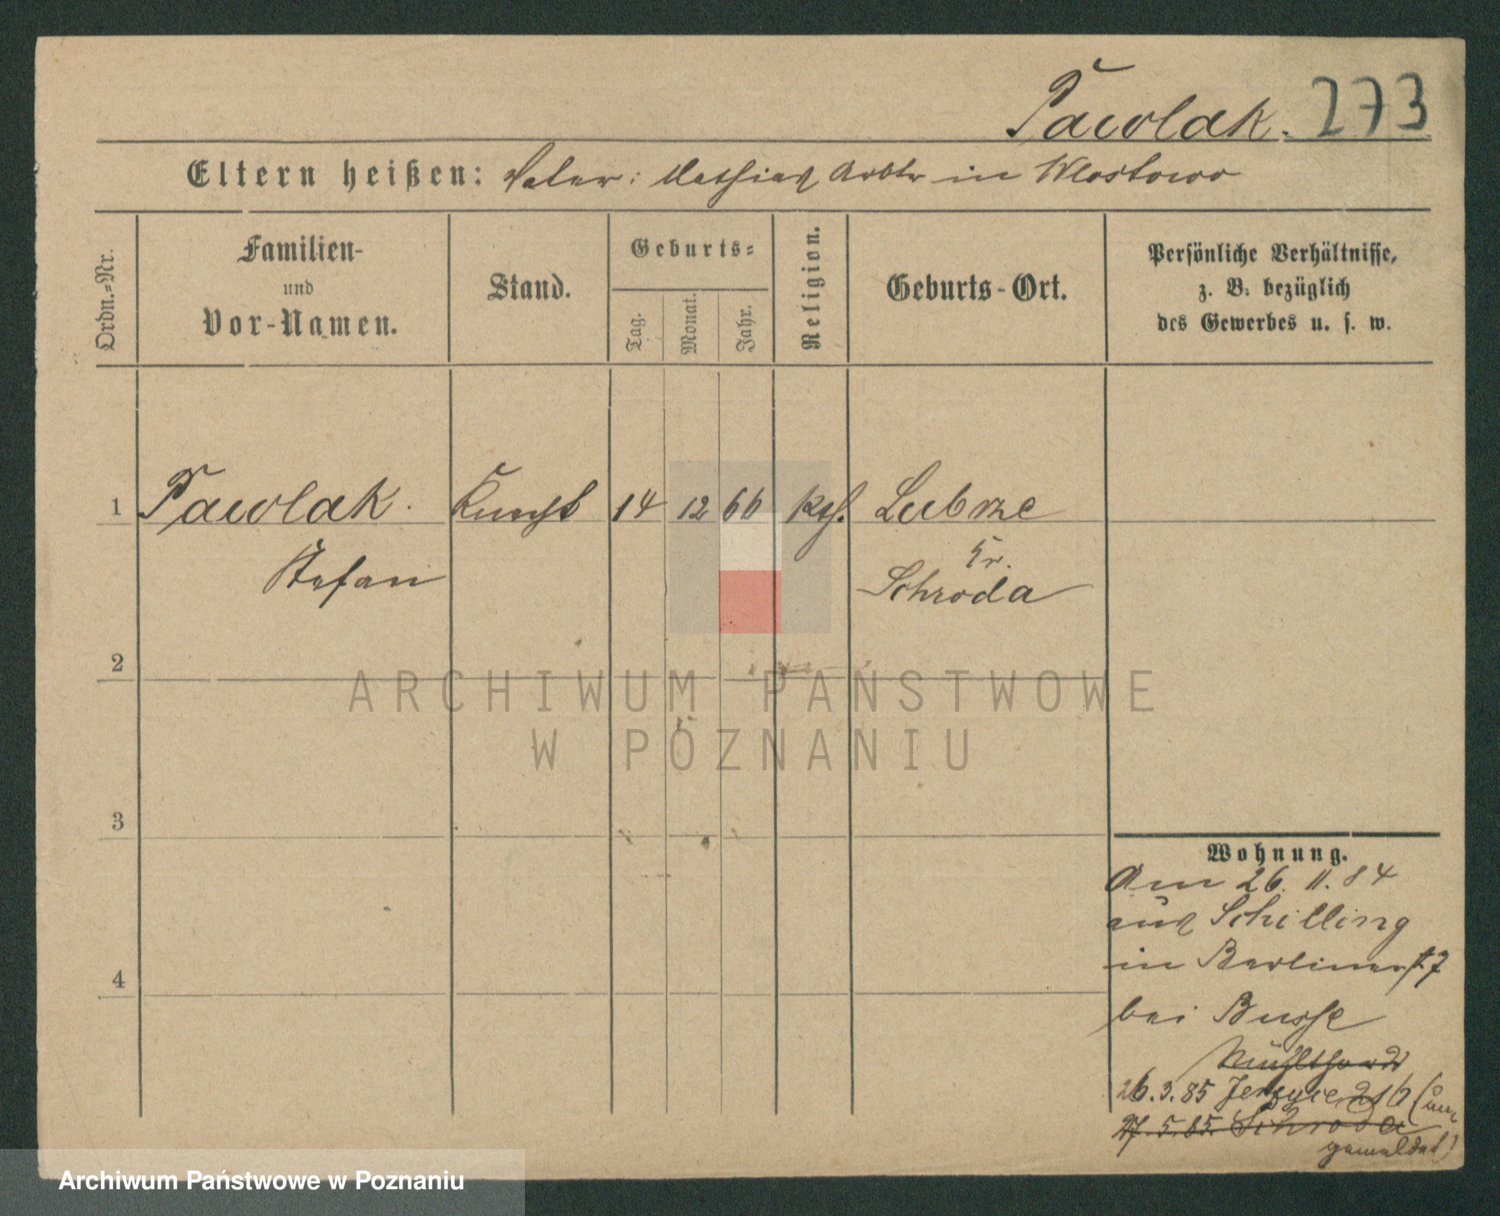 Pawlak. 273
Eltern heißen: Vater: Mathias Arbtr in Wlostowo
Ordn.-Nr.
Familien-
und
Vor-Namen.
Stand.
Geburts-
Tag.
Monat.
Jahr.
Religion.
Geburts-Ort.
Persönliche Verhältnisse,
z. B. bezüglich
des Gewerbes u. s. w.
1 Pawlak. 14 12 66 kth. Lubrze
Stefan Kr.
Schroda
2
ARCHIWUM PAŃSTWOWE
W POZNANIU
3
Wohnung.
Am 26. 11. 84
aus Schilling
in Berlinerst 7
4
bei Busse
26.3.85
27.5.85. Schroda
gemeldet)
Archiwum Państwowe w Poznaniu